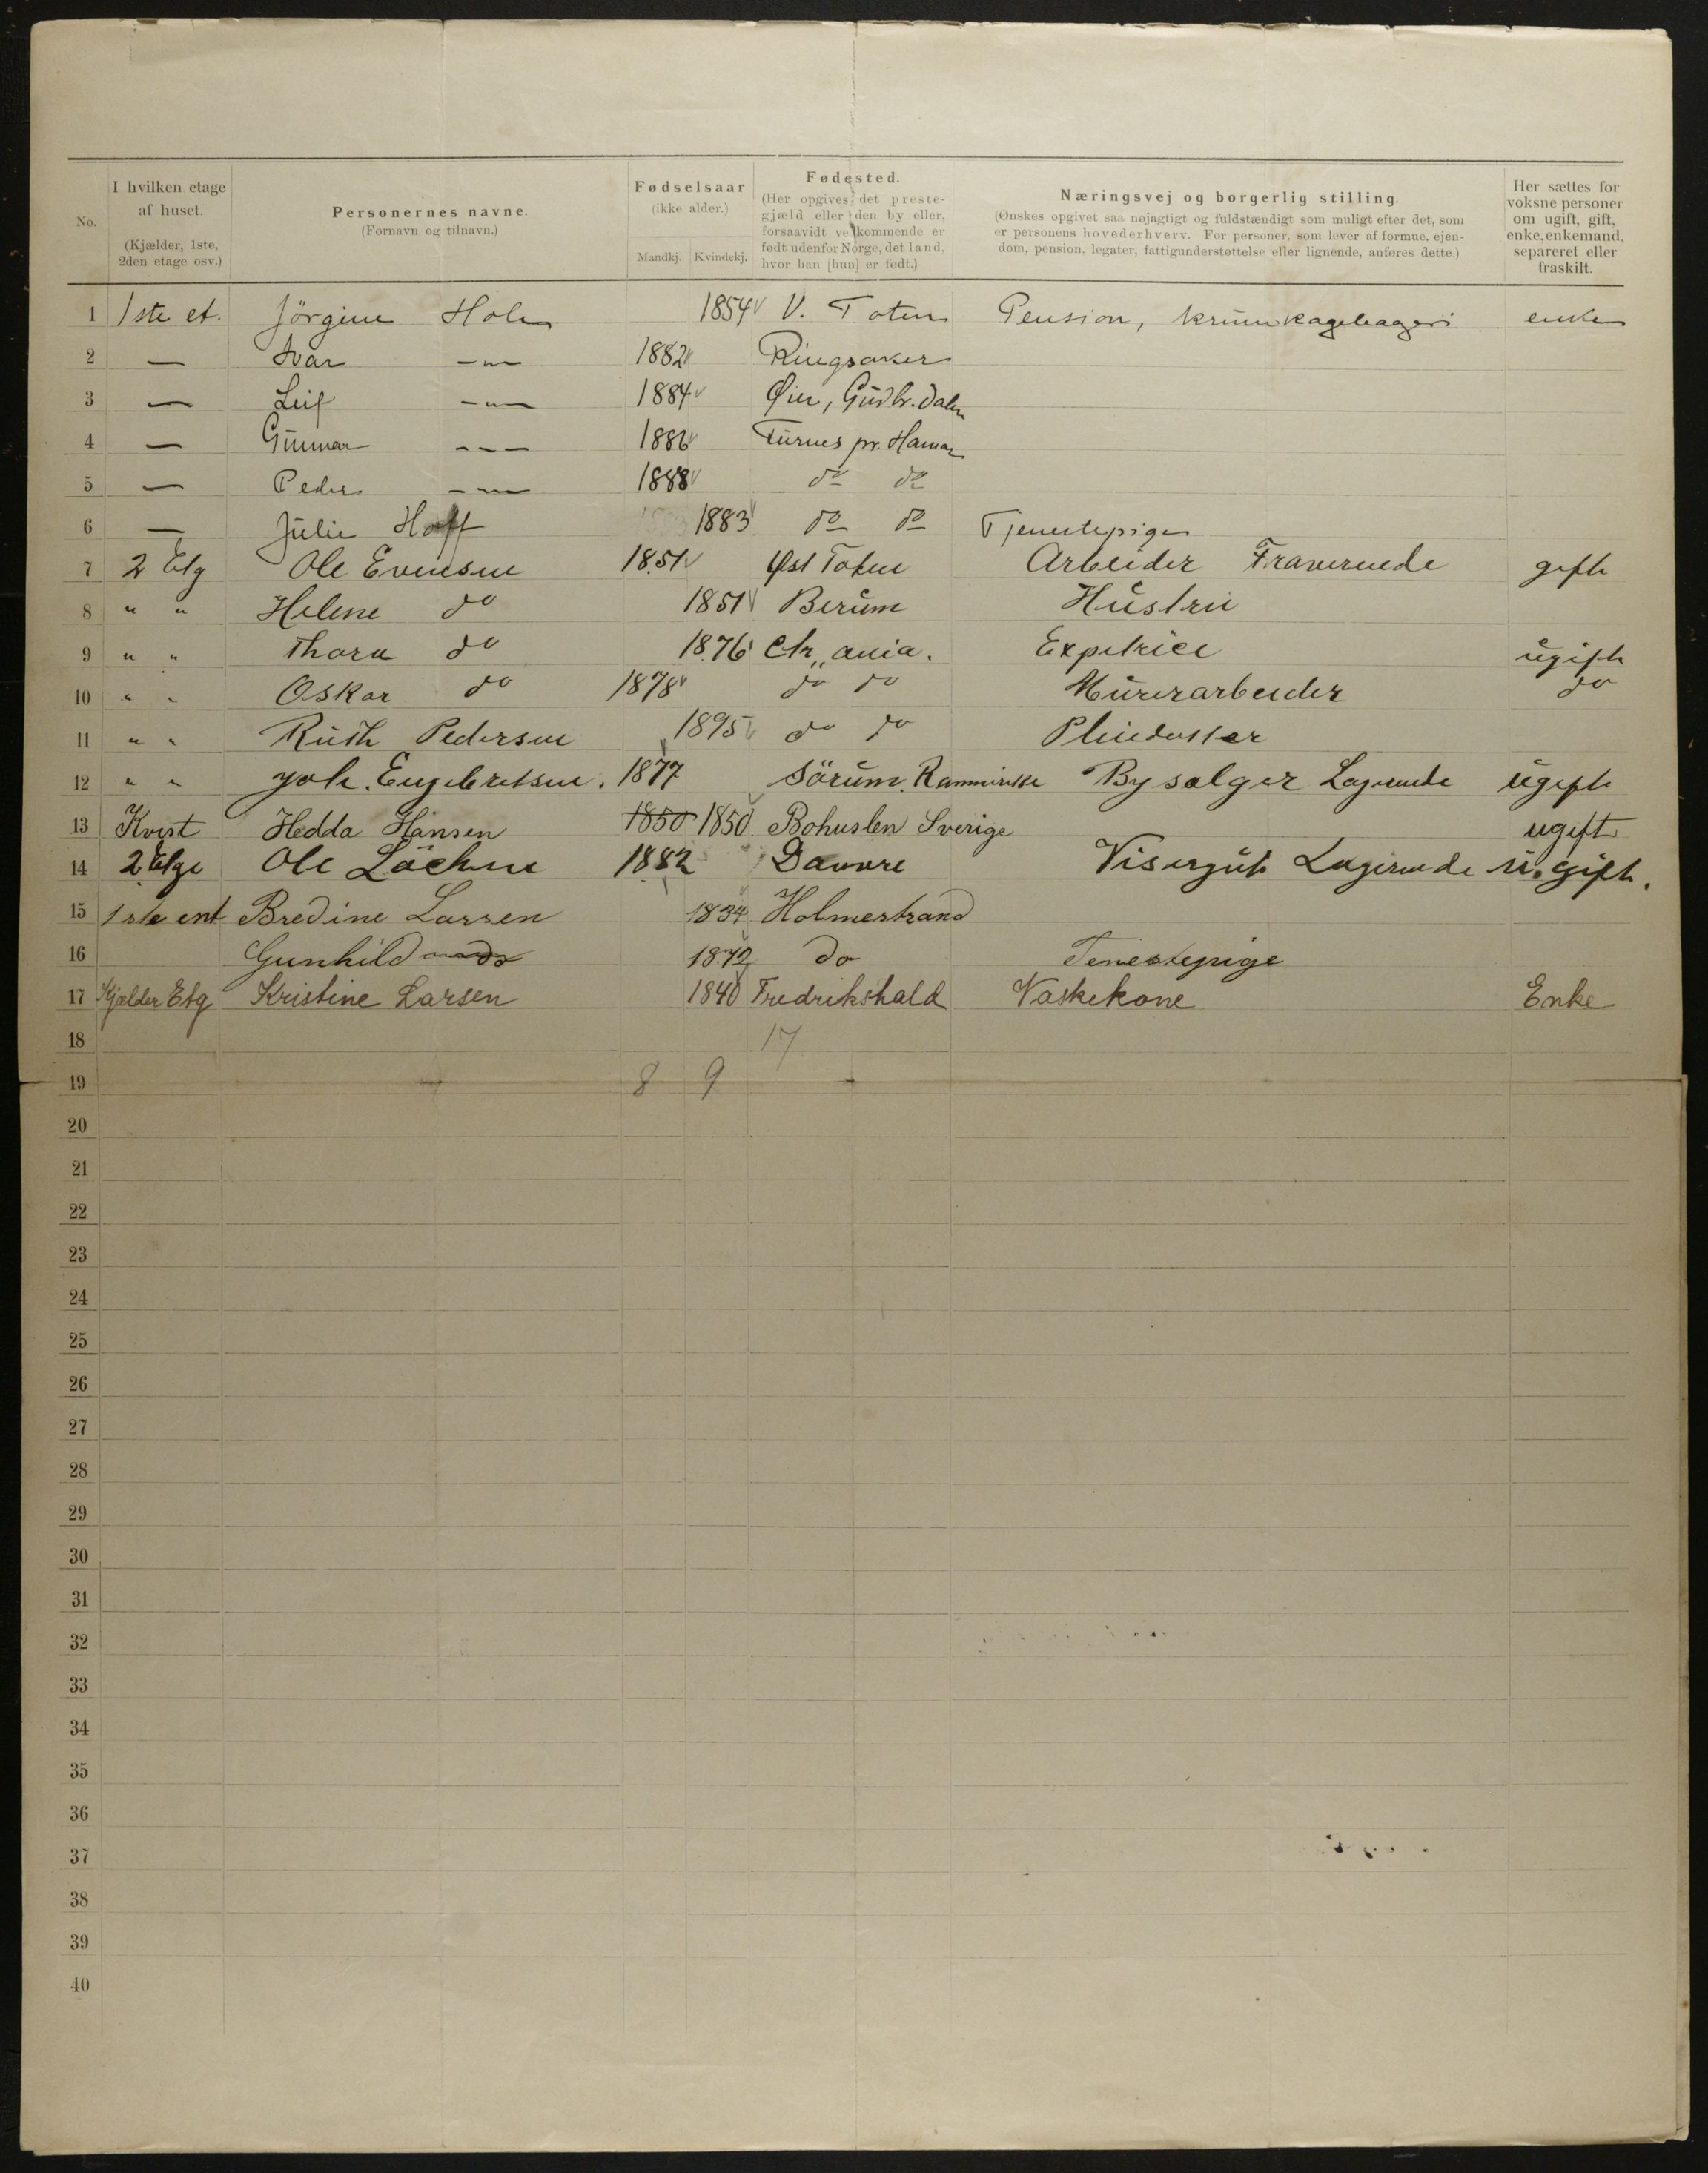 No.
I hvilken etage af huset. (Kjælder, 1ste, 2den etage osv.)
Personernes navne. (Fornavn og tilnavn.)
Fødselsaar (ikke alder.) Mandkj. Kvindekj.
Fødested. (Her opgives det prestegjæld eller den by eller, forsaavidt vedkommende er født udenfor Norge, det land, hvor han [hun] er født.)
Næringsvej og borgerlig stilling. (Ønskes opgivet saa nøjagtigt og fuldstændigt som muligt efter det, som er personens hovederhverv. For personer, som lever af formue, ejendom, pension, legater, fattigunderstøttelse eller lignende, anføres dette.)
Her sættes for voksne personer om ugift, gift, enke, enkemand, separeret eller fraskilt.
1 1ste et. Jörgine Holm 1854 V. Toten Pension, krumkagebageri enke
2 — Ivar —"— 1882 Ringsaker
3 — Leif —"— 1884 Øier, Gudbr.dalen
4 — Gunnar — — — 1886 Furnes pr. Hamar
5 — Peder —"— 1888 do do
6 — Julie Hoff 1883 do do Tjenestepige
7 2 Etg Ole Evensen 1851 Øst Toten Arbeider Fraværende gift
8 " " Helene do 1851 Berum Hustru
9 " " Thora do 1876 Chr,,ania. Expetrice ugift
10 " " Oskar do 1878 do do Murerarbeider do
11 " " Ruth Pedersen 1895 do do Pleiedatter
12 " " Joh. Engebretsen. 1877 Sörum. Rommerike By sælger Logerende ugift
13 Kvist Hedda Hansen 1850 1850 Bohuslen Sverige ugift
14 2 Etge Ole 1882 Dovre Visergut Logerende u.gift.
15 1ste ent Bredine Larsen 1834 Holmestrand
16 Gunhild do 1872 do Tenestepige
17 Kjælder Etg Kristine Larsen 1840 Fredrikshald Vaskekone Enke
18 17
19 8 9
20
21
22
23
24
25
26
27
28
29
30
31
32
33
34
35
36
37
38
39
40